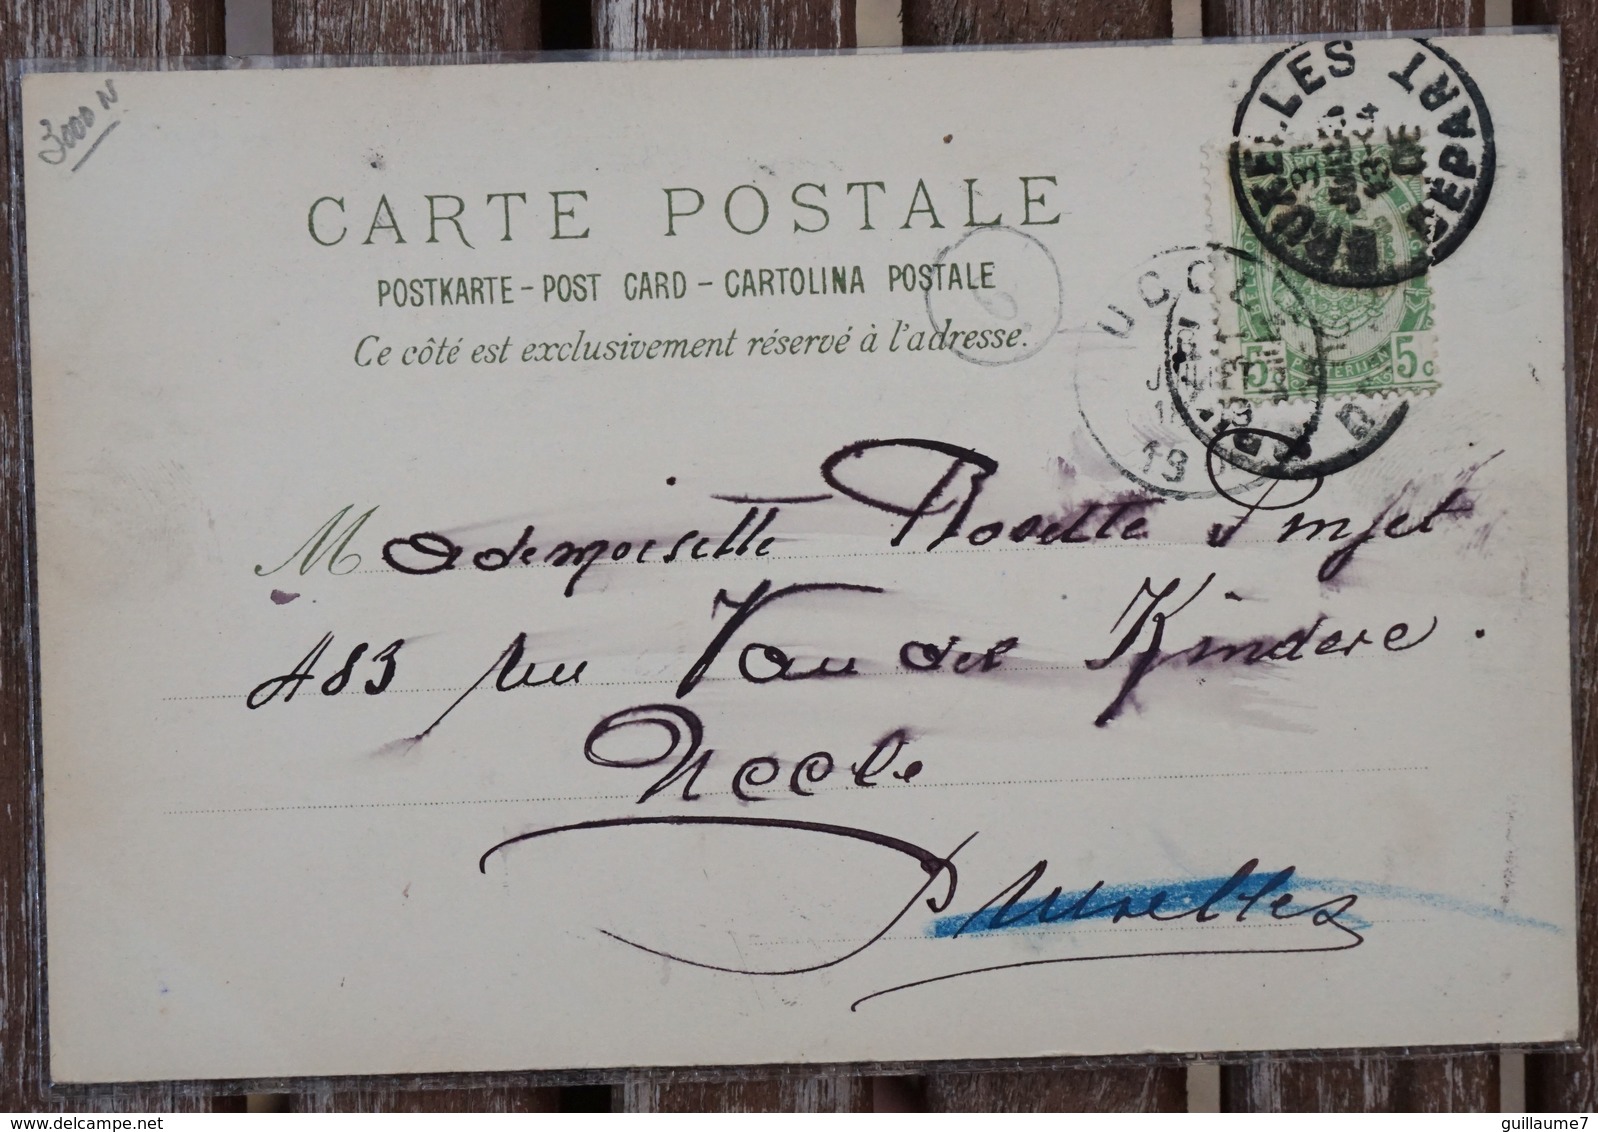 3000 N
CARTE POSTALE
POSTKARTE - POST CARD - CARTOLINA POSTALE
Ce côté est exclusivement réservé à l'adresse.
BRUXELLES DEPART
5 POSTERIJEN 5c
UCC
Mademoiselle Rosette
483 rue Van der Kindere.
Uccle
Bruxelles
guillaume7